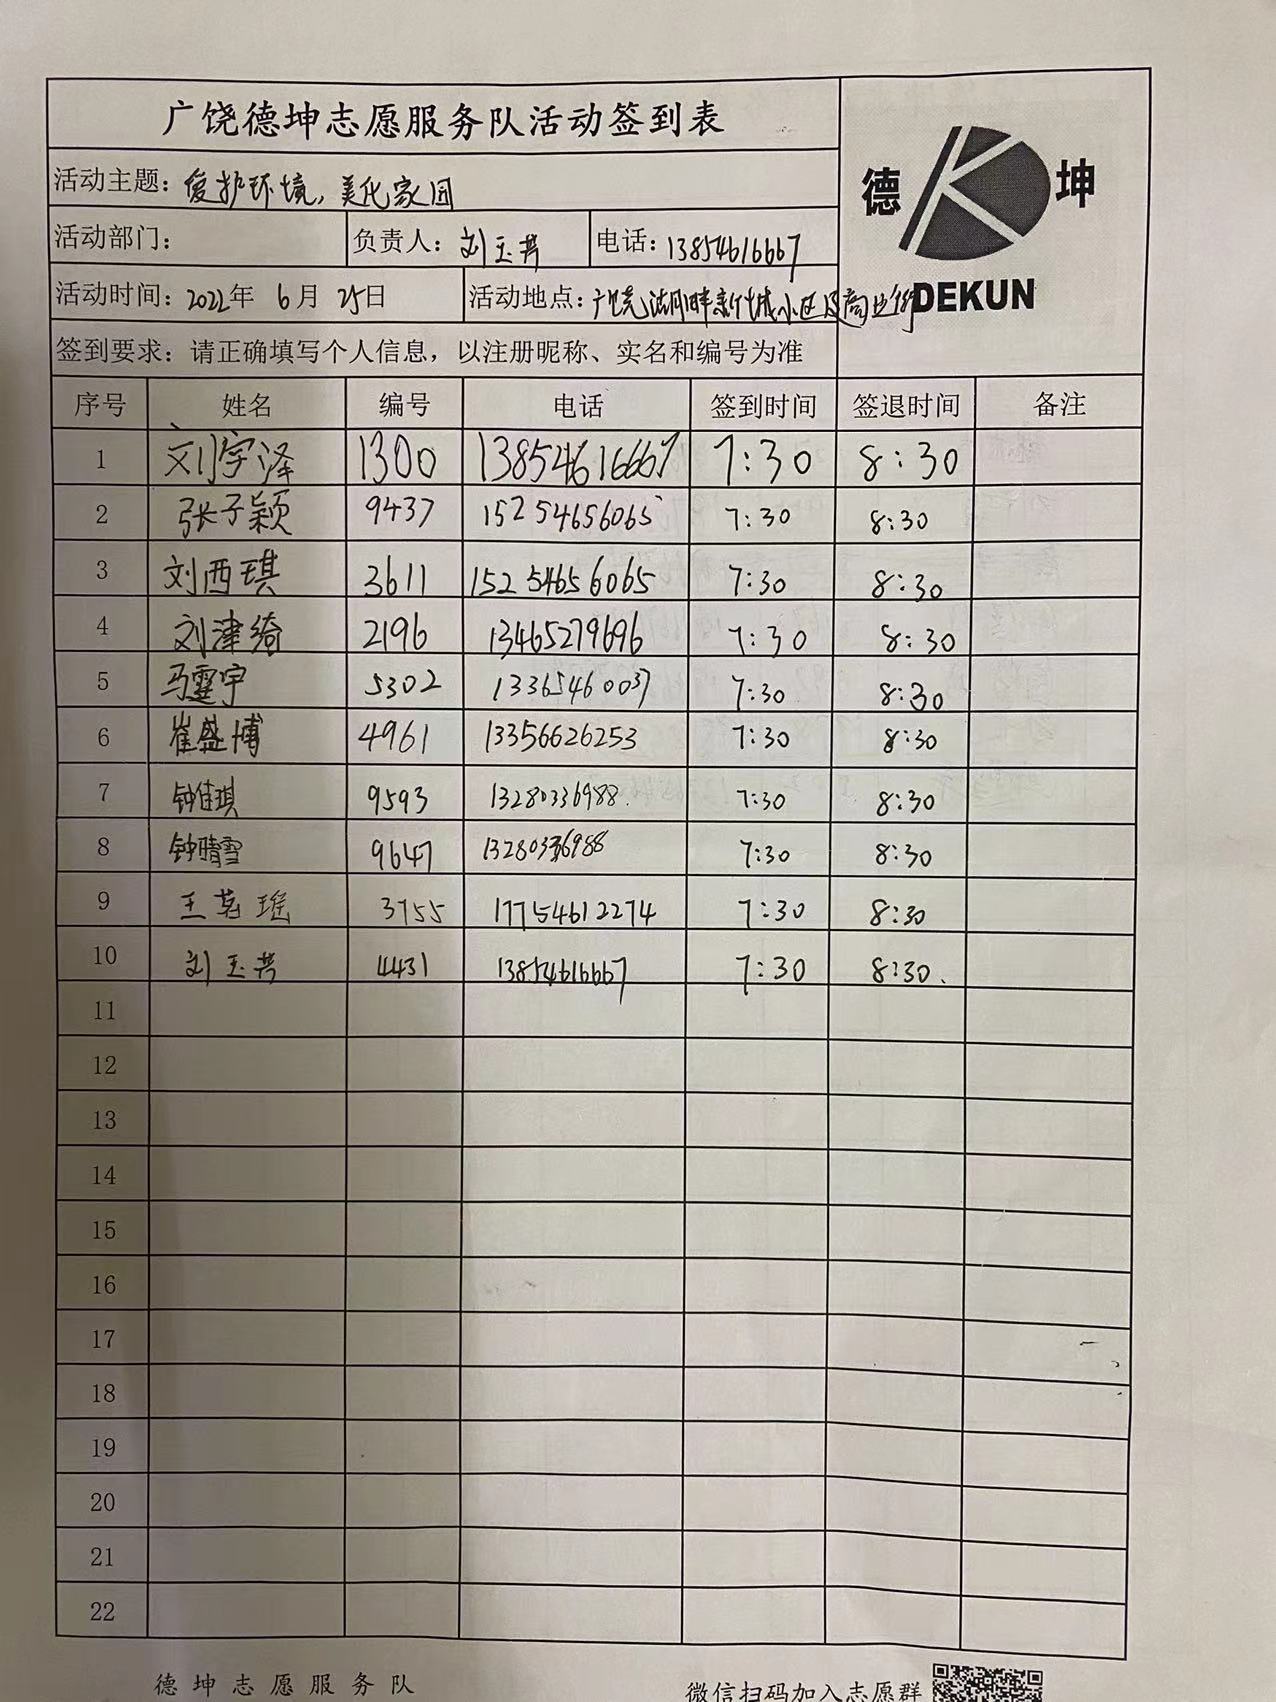 广饶德坤志愿服务队活动签到表
德 坤
DEKUN
活动主题：爱护环境，美化家园
活动部门： 负责人：刘玉芳 电话：13854616667
活动时间：2022年 6月 25日 活动地点：广饶湖畔新城小区及商业街
签到要求：请正确填写个人信息，以注册昵称、实名和编号为准
序号 姓名 编号 电话 签到时间 签退时间 备注
1 刘宇泽 1300 13854616667 7:30 8:30
2 张子颖 9437 15254656065 7:30 8:30
3 刘西琪 3611 15254656065 7:30 8:30
4 刘津绮 2196 13465279696 7:30 8:30
5 马霆宇 5302 13365460037 7:30 8:30
6 崔盛博 4961 13356626253 7:30 8:30
7 钟佳琪 9593 13280336988 7:30 8:30
8 钟晴雪 9647 13280336988 7:30 8:30
9 王茗瑶 3755 17754612274 7:30 8:30
10 刘玉芳 4431 13854616667 7:30 8:30
11
12
13
14
15
16
17
18
19
20
21
22
德坤志愿服务队 微信扫码加入志愿群